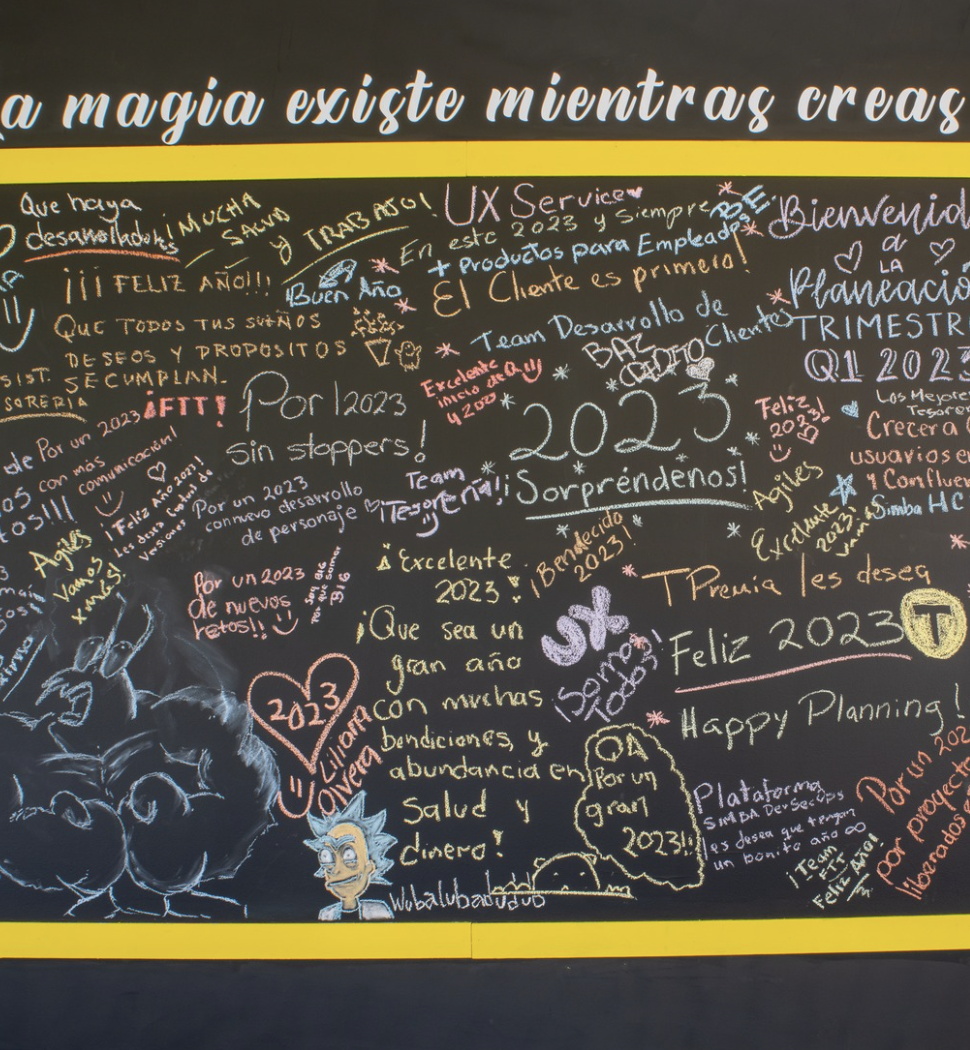 a magia existe mientras creas
Que haya
desarrolladores
¡MUCHA
SALUD
y
TRABAJO!
¡¡¡ FELIZ AÑO!!!
Buen Año
QUE TODOS TUS SUEÑOS
DESEOS Y PROPOSITOS
SE CUMPLAN.
SIST.
SORERIA
¡FTT!
UX Service
En este 2023 y siempre
+ Productos para Empleados
El Cliente es primero!
Team Desarrollo de
Clientes
BAZ
CREDITO
Excelente
inicio de Q
4200
Bienvenid
a
LA
Planeació
TRIMESTR
Q1 2023
Los Mejore
Tesorer
Crecer a
usuarios en
y Confluen
Simba HC
Por 2023
sin stoppers!
2023
¡Sorpréndenos!
Feliz
2023!
Agiles
Excelente
2023!
vamos
de Por un 2023
con más
comunicación!
¡Feliz Año 2023!
Les desea
Por un 2023
con nuevo desarrollo
de personaje
Team
¡Tesorería!
Agiles
Vamos
x más!
Por un 2023
de nuevos
retos!!
¡Excelente
2023!
¡Bendecido
2023!
¡Que sea un
gran año
con muchas
bendiciones, y
abundancia en
Salud y
dinero!
UX
¡Somos
Todos!
T Premia les desea
Feliz 2023
T
Happy Planning!
2023
Liliana
Olvera
QA
Por un
gran
2023!!
Plataforma
SIMBA DevSecOps
les desea que tengan
un bonito año
¡Team
FTT
Feliz Año!
Por un 202
por proyecto
liberados
Wubalubadubdub